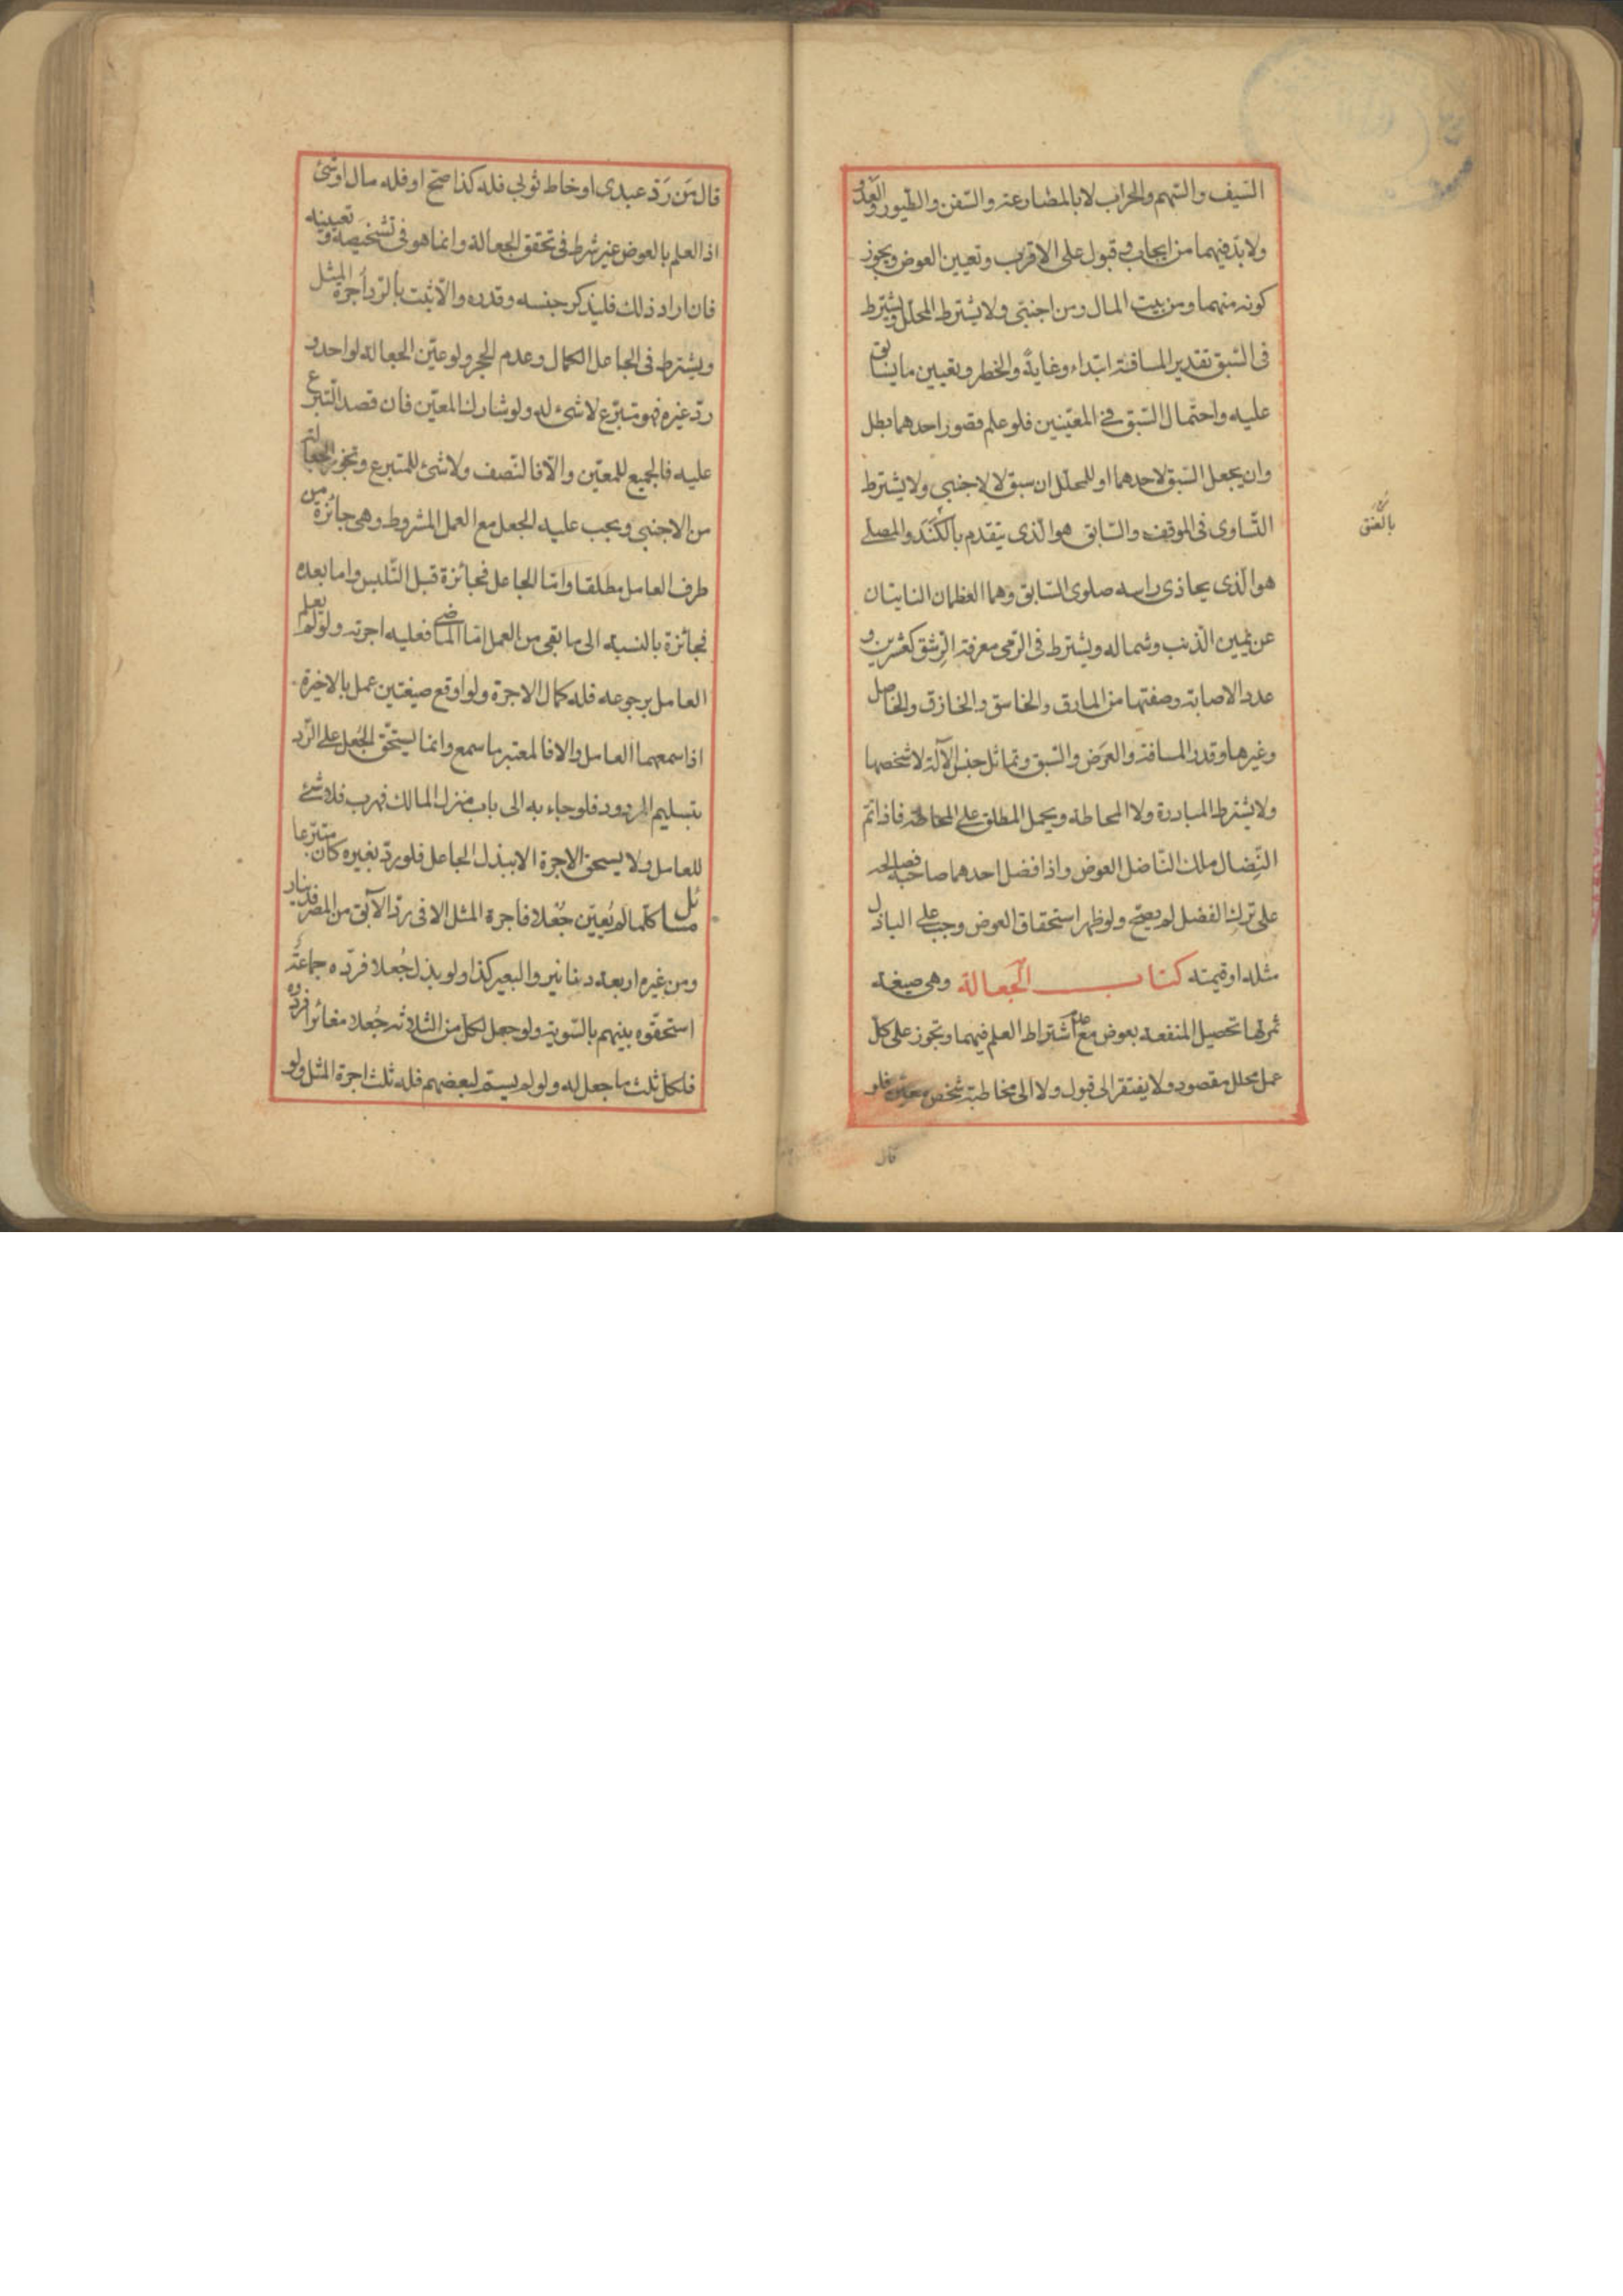 السّيف والسّهم والحراب لا بالمصارعة والسّفن والطّيور والعَدْو
ولا بدّ فيهما من ايجاب وقبول على الاقرب وتعيين العوض ويجوز
كونه منهما ومن بيت المال ومن اجنبيّ ولا يشترط المحلّل ويشترط
فى السّبق تقدير المسافة ابتداء وغايةً والخطر وتعيين ما يسابق
عليه واحتمال السّبق فى المعيّنين فلو علم قصور احدهما بطل
وان يجعل السّبق لاحدهما او للمحلّل ان سبق لا لاجنبي ولا يشترط
التّساوى فى الموقف والسّابق هو الّذى يتقدم بالكَتَد والمصلّى
بالعُنُق
هو الّذى يحاذى راسه صلوى السّابق وهما العظمان النابتان
عن يمين الذّنب وشماله ويشترط فى الرّمى معرفة الرِّشق كعشرين و
عدد الاصابة وصفتها من المارق والخاسق والخازق والخاصل
وغيرها وقدر المسافة والغَرَض والسّبق وتماثل جنس الآلة لا شخصها
ولا يشترط المبادرة ولا المحاطة ويحمل المطلق على المحاطة فاذا تمّ
النّضال ملك النّاضل العوض واذا فضل احدهما صاحبه فصالحه
على ترك الفضل لم يصحّ ولو ظهر استحقاق العوض وجب على الباذل
مثله او قيمته كتاب الجعالة وهى صيغة
ثمرتها تحصيل المنفعة بعوض مع عدم اشتراط العلم فيهما وتجوز على كلّ
عمل محلل مقصود ولا يفتقر الى قبول ولا الى مخاطبة شخص معيّن فلو
قال
قال مَن رَدّ عبدى او خاط ثوبى فله كذا صحّ او فله مال او شئ
اذ العلم بالعوض غير شرط فى تحقق الجعالة وانما هو فى تشخيصه و تعيينه
فان اراد ذلك فليذكر جنسه وقدره والّا ثبت بالرّد اجرة المثل
ويشترط فى الجاعل الكمال وعدم الحجر ولو عيّن الجعالة لواحد و
ردّ غيره فهو متبرّع لا شىء له ولو شارك المعيّن فان قصد التّبرّع
عليه فالجميع للمعيّن والّا فالنّصف ولا شئ للمتبرع وتجوز الجعالة
من الاجنبى ويجب عليه الجعل مع العمل المشروط وهى جائزة من
طرف العامل مطلقا وامّا الجاعل فجائزة قبل التّلبس واما بعده
فجائزة بالنسبة الى ما بقى من العمل امّا الماضى فعليه اجرته ولو لم يعلم
العامل برجوعه فله كمال الاجرة ولو اوقع صيغتين عمل بالاخيرة
اذا سمعهما العامل والا فالمعتبر ما سمع وانما يستحقّ الجُعل على الرّد
بتسليم المردود فلو جاء به الى باب منزل المالك فهرب فلا شئ
للعامل ولا يستحق الاجرة الا ببذل الجاعل فلو ردّ بغيره كان متبرّعا
مسائل كلّما لم يُعيّن جُعلا فاجرة المثل الا فى ردّ الآبق من المصر فدينار
ومن غيره اربعة دنانير والبعير كذا ولو بذل جُعلا فردّه جماعة
استحقّوه بينهم بالسّوية ولو جعل لكلّ من الثلاثة جُعلا مغائرا فردّوه
فلكلّ ثلث ما جعل له ولو لم يسمّ لبعضهم فله ثلث اجرة المثل ولو